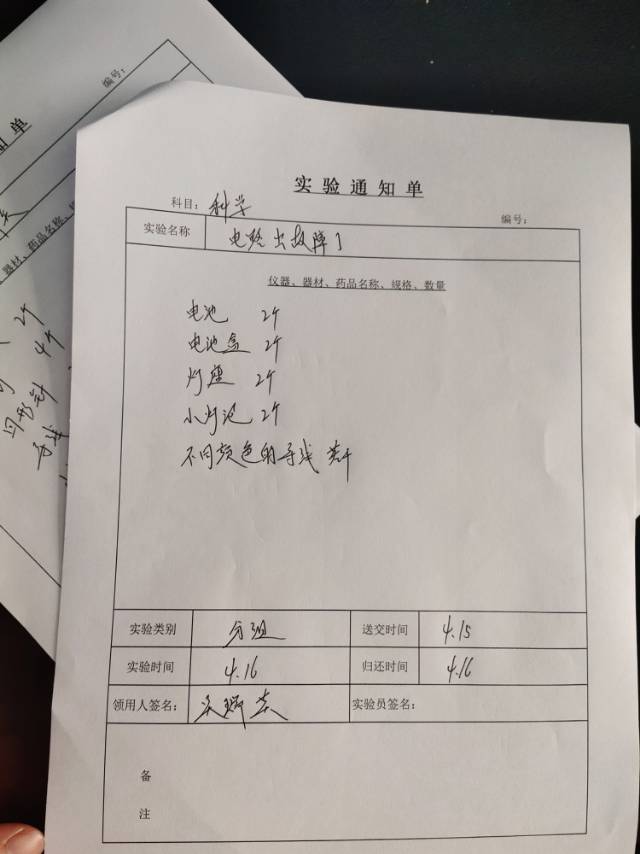 编号：
单
实验通知单
科目：科学
编号：
实验名称 电路出故障了
仪器、器材、药品名称、规格、数量
电池 2个
电池盒 2个
灯座 2个
小灯泡 2个
不同颜色的导线 若干
实验类别 分组 送交时间 4.15
实验时间 4.16 归还时间 4.16
领用人签名： 实验员签名：
备
注
器材、药品名称、
2个
回形针 4个
导线